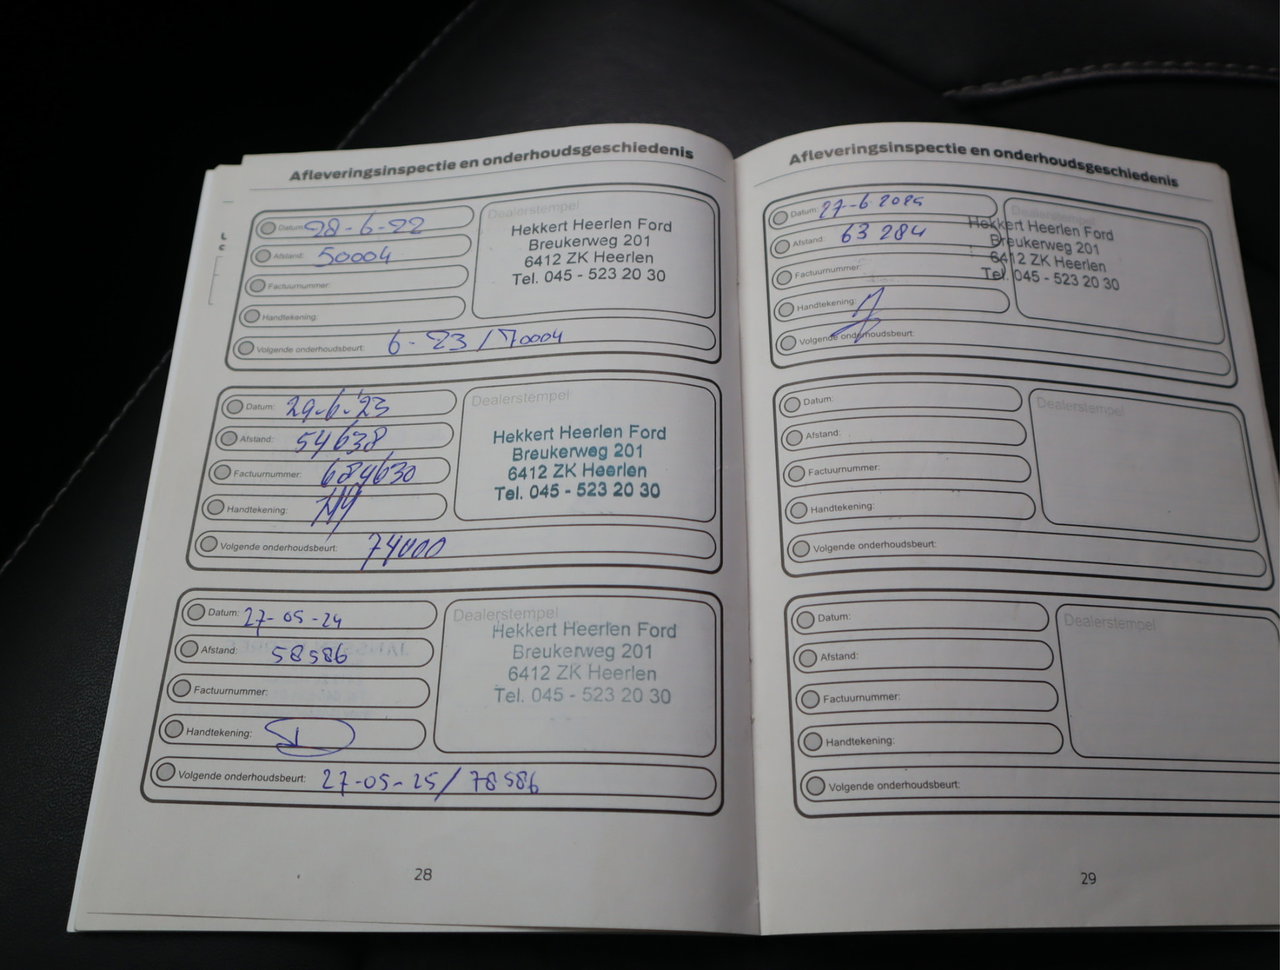 Afleveringsinspectie en onderhoudsgeschiedenis
Datum: 28-6-22
Afstand: 50004
Factuurnummer:
Handtekening:
Volgende onderhoudsbeurt: 6-23 / 70004
Dealerstempel
Hekkert Heerlen Ford
Breukerweg 201
6412 ZK Heerlen
Tel. 045 - 523 20 30
Datum: 29-6-'23
Afstand: 54638
Factuurnummer: 684630
Handtekening:
Volgende onderhoudsbeurt: 74000
Dealerstempel
Hekkert Heerlen Ford
Breukerweg 201
6412 ZK Heerlen
Tel. 045 - 523 20 30
Datum: 27-05-24
Afstand: 58586
Factuurnummer:
Handtekening:
Volgende onderhoudsbeurt: 27-05-25 / 78586
Dealerstempel
Hekkert Heerlen Ford
Breukerweg 201
6412 ZK Heerlen
Tel. 045 - 523 20 30
28
Afleveringsinspectie en onderhoudsgeschiedenis
Datum: 27-6 2025
Afstand: 63 284
Factuurnummer:
Handtekening:
Volgende onderhoudsbeurt:
Dealerstempel
Hekkert Heerlen Ford
Breukerweg 201
6412 ZK Heerlen
Tel. 045 - 523 20 30
Datum:
Afstand:
Factuurnummer:
Handtekening:
Volgende onderhoudsbeurt:
Dealerstempel
Datum:
Afstand:
Factuurnummer:
Handtekening:
Volgende onderhoudsbeurt:
Dealerstempel
29